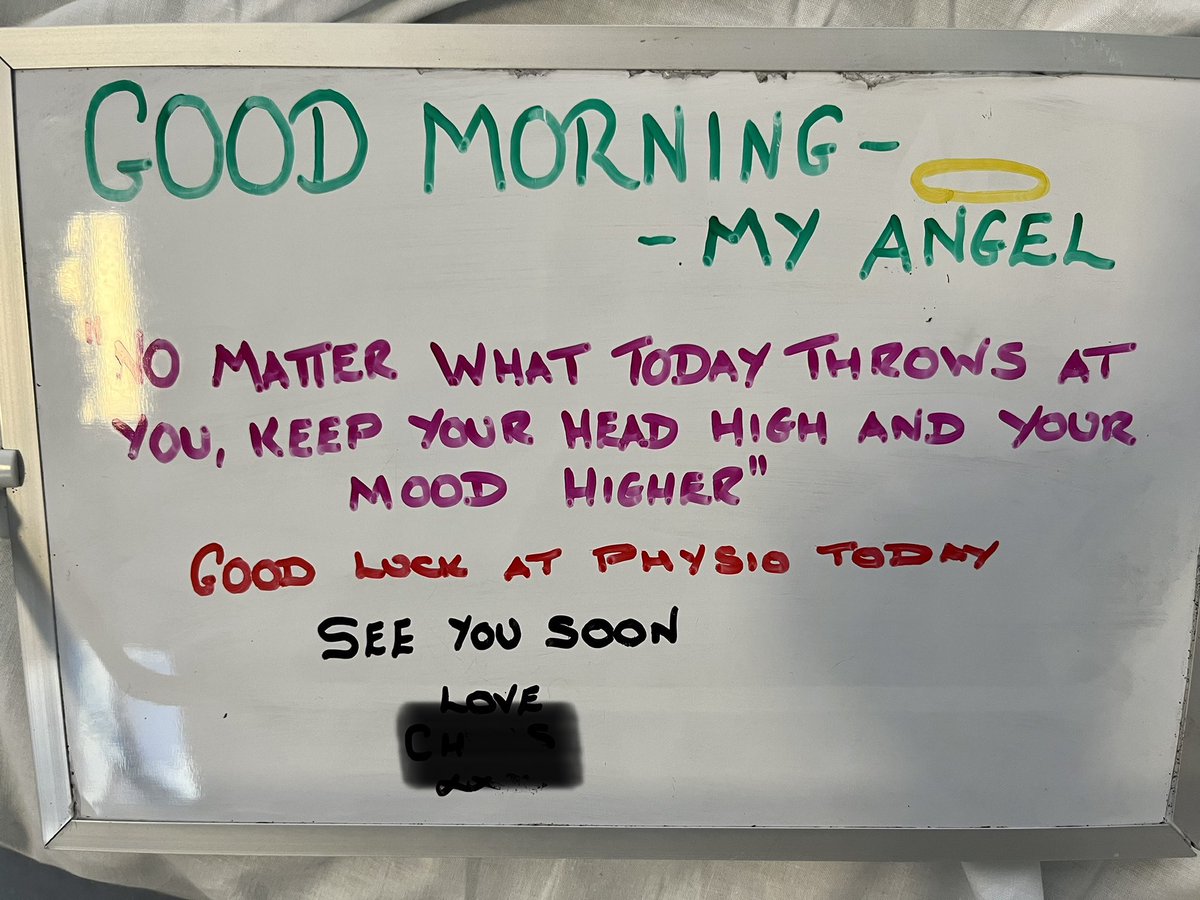 GOOD MORNING -
- MY ANGEL
"NO MATTER WHAT TODAY THROWS AT
YOU, KEEP YOUR HEAD HIGH AND YOUR
MOOD HIGHER"
GOOD LUCK AT PHYSIO TODAY
SEE YOU SOON
LOVE